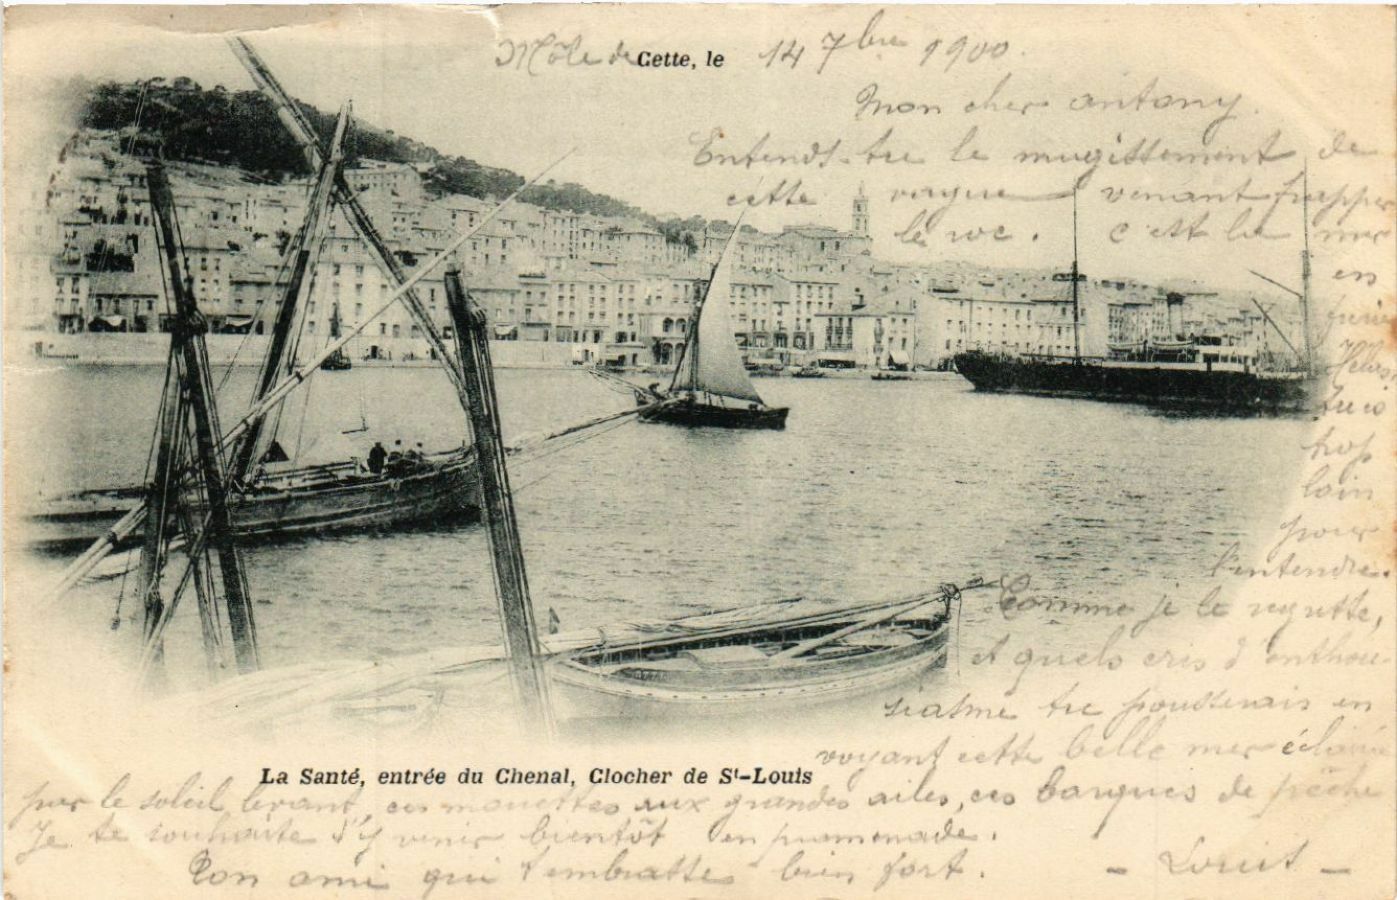 Môle de Cette, le 14 7bre 1900.
Mon cher antony.
Entends-tu le mugissement de
cette vague venant frapper
le roc. c'est la mer
en
furie
Hélas,
tu es
trop
loin
pour
l'entendre.
Comme je le regrette,
et quels cris d'enthou-
siasme tu pousserais en
voyant cette belle mer éclairée
La Santé, entrée du Chenal, Clocher de St-Louis
par le soleil levant, ces mouettes aux grandes ailes, ces barques de pêche
Je te souhaite d'y venir bientôt en promenade.
Ton ami qui t'embrasse bien fort. - Louis -